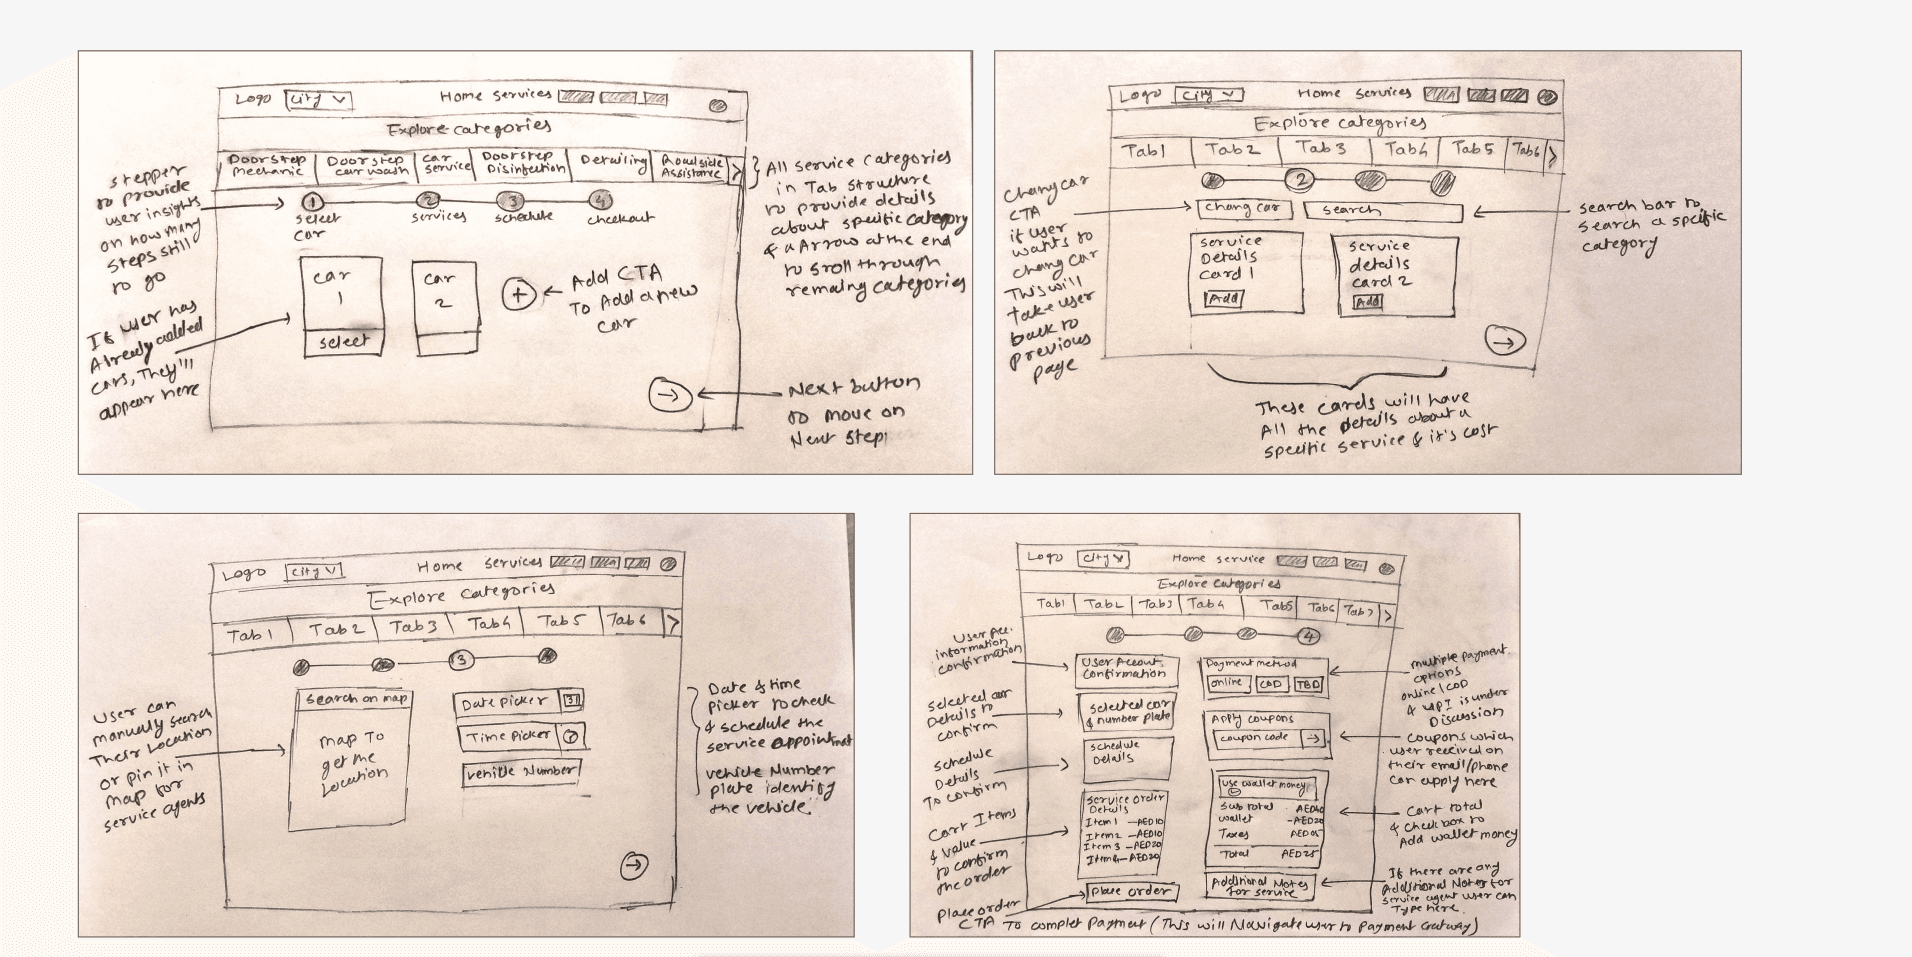 Logo City
Home Services
Explore categories
Doorstep Mechanic
Doorstep car wash
car service
Doorstep Disinfection
Detailing
Roadside Assistance
>
1
2
3
4
select car
services
schedule
checkout
car
1
select
car
2
+
→
stepper
to provide
user insights
on how many
steps still
to go
If user has
Already added
cars, They'll
appear here
Add CTA
To Add a new
car
All service categories
in Tab structure
to provide details
about specific category
& a Arrow at the end
to sroll through
remaing categories
Next button
to move on
Next step
Logo City
Home Services
Explore categories
Tab1 Tab2 Tab3 Tab4 Tab5 Tab6 >
2
chang car
search
service
Details
card 1
Add
service
details
card 2
Add
→
chang car
CTA
if user
wants to
chang car
This will
Take user
back to
previous
page
search bar to
search a specific
category
These cards will have
All the details about a
specific service & it's cost
Logo City
Home services
Explore categories
Tab1 Tab2 Tab3 Tab4 Tab5 Tab6 >
3
Search on map
map To
get the
Location
Date picker 31
Time picker
vehicle Number
→
User can
manually search
Their Location
or pin it in
map for
service agents
Date & time
picker to check
& schedule the
service appointmat
vehicle Number
plate identify
the vehicle
Logo City
Home service
Explore categories
Tab1 Tab2 Tab3 Tab4 Tab5 Tab6 Tab7 >
4
User Account
Confirmation
selected car
& number plate
schedule
Details
Service order
Details
Item1 —AED10
Item2 —AED10
Item3 —AED20
Item4—AED20
Place order
Payment method
online COD TBD
Apply coupons
coupon code →
use wallet money
Sub total AED40
wallet -AED20
Taxes AED05
Total AED25
Additional Notes
for service
User Acc.
information
confirmation
Selected car
Details to
confirm
schedule
Details
To confirm
Cart Items
& value
to confirm
the order
Place order
CTA To complet Payment (This will Navigate user to Payment Gatway)
multiple Payment
options
online / COD
& UPI is under
Discussion
Coupons which
user received on
their email/phone
can apply here
Cart total
& check box to
Add wallet money
If there are any
Additional Notes for
service agent user can
Type here.